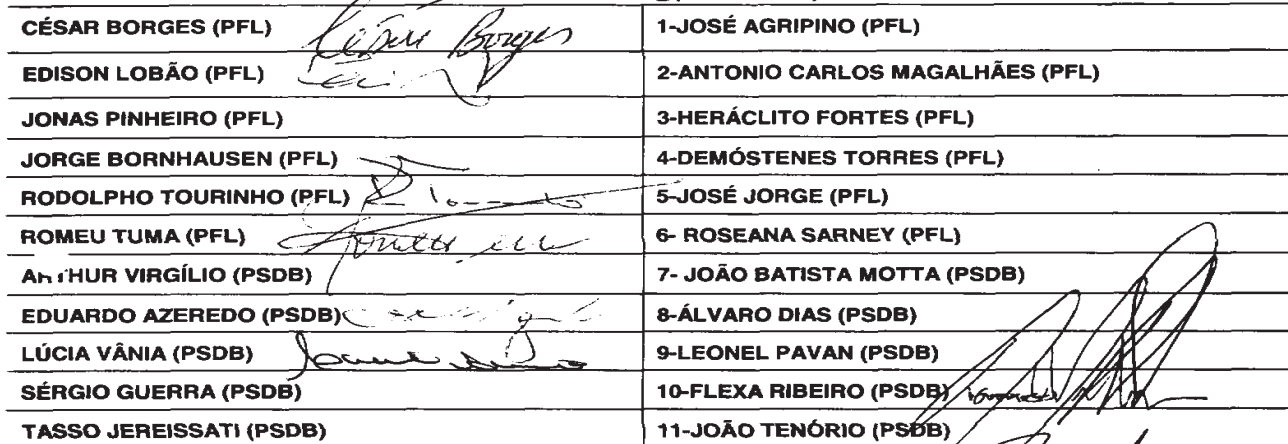 CÉSAR BORGES (PFL) César Borges 1-JOSÉ AGRIPINO (PFL)
EDISON LOBÃO (PFL) 2-ANTONIO CARLOS MAGALHÃES (PFL)
JONAS PINHEIRO (PFL) 3-HERÁCLITO FORTES (PFL)
JORGE BORNHAUSEN (PFL) 4-DEMÓSTENES TORRES (PFL)
RODOLPHO TOURINHO (PFL) 5-JOSÉ JORGE (PFL)
ROMEU TUMA (PFL) 6- ROSEANA SARNEY (PFL)
ARTHUR VIRGÍLIO (PSDB) 7- JOÃO BATISTA MOTTA (PSDB)
EDUARDO AZEREDO (PSDB) 8-ÁLVARO DIAS (PSDB)
LÚCIA VÂNIA (PSDB) 9-LEONEL PAVAN (PSDB)
SÉRGIO GUERRA (PSDB) 10-FLEXA RIBEIRO (PSDB)
TASSO JEREISSATI (PSDB) 11-JOÃO TENÓRIO (PSDB)